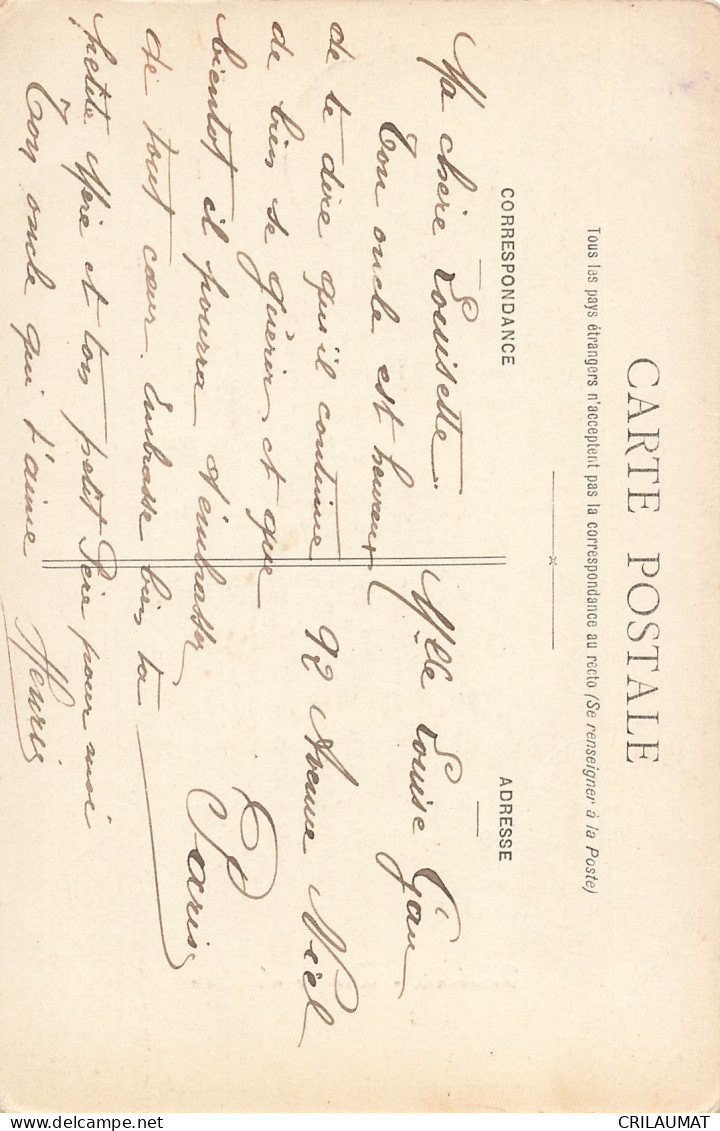 CARTE POSTALE
Tous les pays étrangers n'acceptent pas la correspondance au recto (Se renseigner à la Poste)
CORRESPONDANCE
Ma chère Louisette
Ton oncle est heureux
de te dire qu'il continue
de bien se guérir et que
bientot il pourra t'embrasser
de tout cœur. Embrasse bien ta
petite Mère et ton petit Père pour moi
Ton oncle qui t'aime
Henri
ADRESSE
Mlle Louise
92 Avenue Niel
Paris
CRILAUMAT